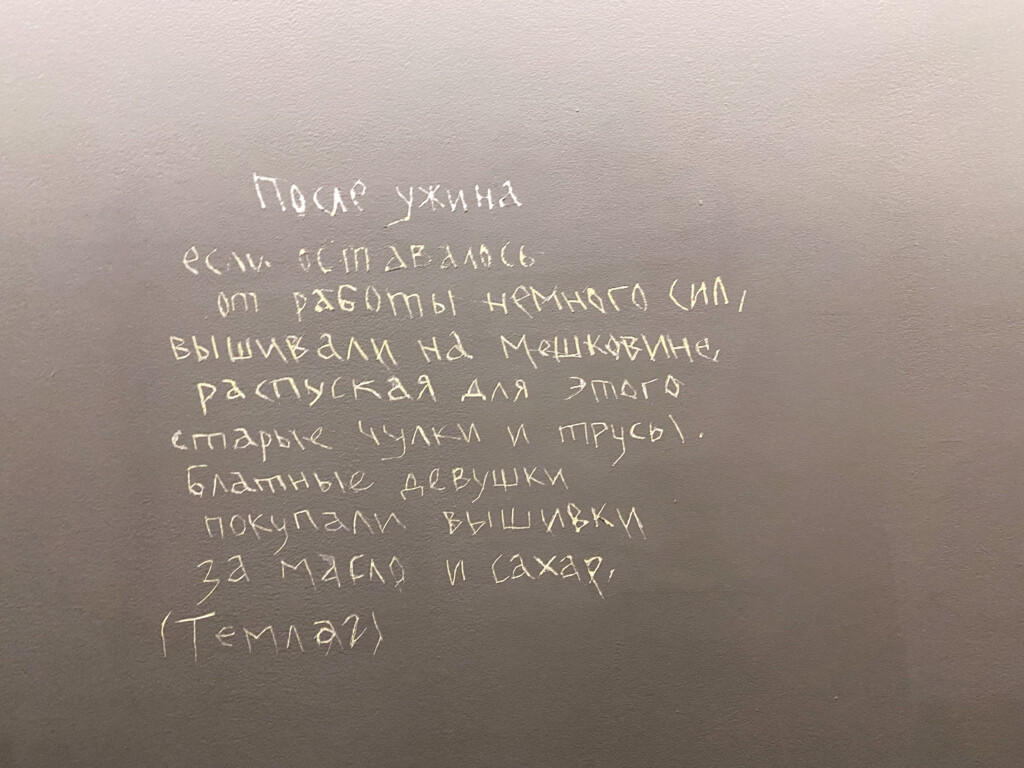 После ужина
если оставалось
от работы немного сил,
вышивали на мешковине,
распуская для этого
старые чулки и трусы.
блатные девушки
покупали вышивки
за масло и сахар.
(Темлаг)